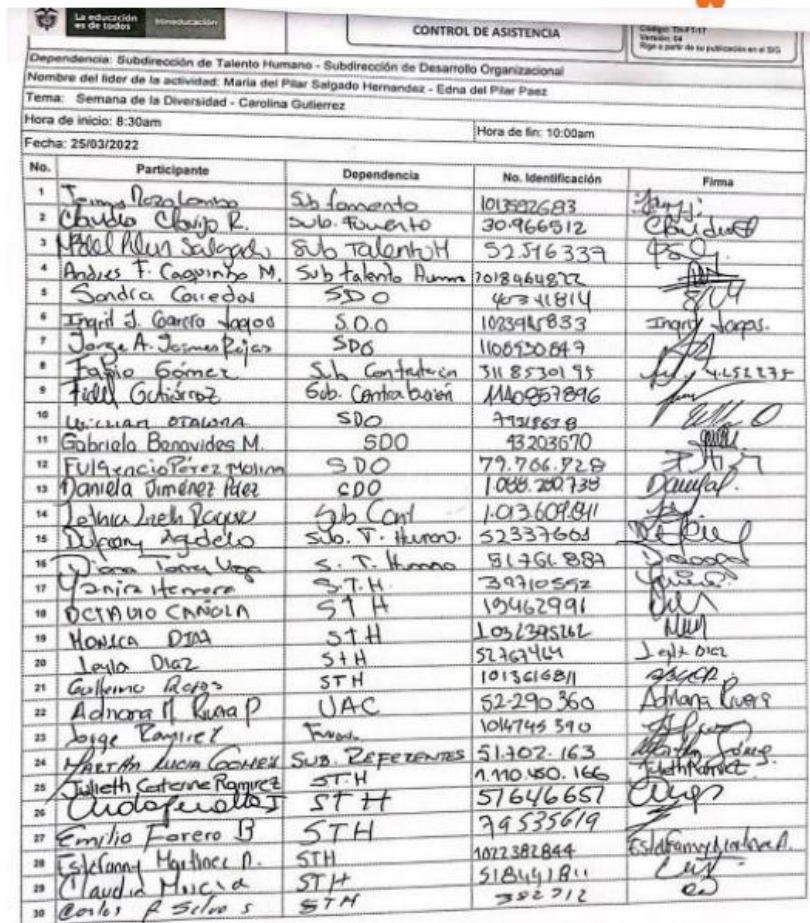 La educación
es de todos
Mineducación
CONTROL DE ASISTENCIA
Código: TH-FT-17
Versión: 04
Rige a partir de su publicación en el SIG
Dependencia: Subdirección de Talento Humano - Subdirección de Desarrollo Organizacional
Nombre del líder de la actividad: Maria del Pilar Salgado Hernandez - Edna del Pilar Paez
Tema: Semana de la Diversidad - Carolina Gutierrez
Hora de inicio: 8:30am Hora de fin: 10:00am
Fecha: 25/03/2022
No. Participante Dependencia No. Identificación Firma
1 Sub fomento 1013592683
2 Claudia Clavijo R. Sub. Fomento 30.966512
3 Pilar Salgado Sub Talento H 52.516337
4 Andres F. M. Sub talento Human 1018464822
5 Sandra Corredor SDO
6 Ingrid J. García S.D.O Ingrid
7 Jorge A. Rojas SDO
8 Fabio Gómez Sub 3118530195
9 Fidel Gutiérrez Sub. 1140857896
10 William OTALORA SDO
11 Gabriela Benavides M. SDO 43203670
12 Fulgencio Pérez Molina SDO 79.766.728
13 Daniela Jiménez Páez SDO 1.088.280.738
14 Sub Cont 1.013.609.641
15 Agudelo Sub. T. Human. 52337601
16 Diana Torres Vega S. T. Humano 51761.887
17 Yanira Herrera S.T.H. 39710592
18 OCTAVIO CAÑOLA STH 19462991
19 MONICA DIAZ STH 1032395262
20 Leyla Diaz STH 52767464 Leyla Diaz
21 Guillermo Rojas STH 1013616811
22 Adriana M Rivera P UAC 52-290360 Adriana Rivera
23 Jorge Ramirez 1014745390
24 MARTHA LUCIA GOMEZ SUB. REFERENTES 51.702.163 Martha Gómez
25 Julieth Caterine Ramirez ST.H 1.110.450.166 Julieth Ramirez
26 STH 51646657
27 Emilio Forero B STH 79535619
28 Estefanny Martinez P. STH 1022382844
29 Claudia Murcia STH 518441811
30 Carlos R Silva S STH 382712